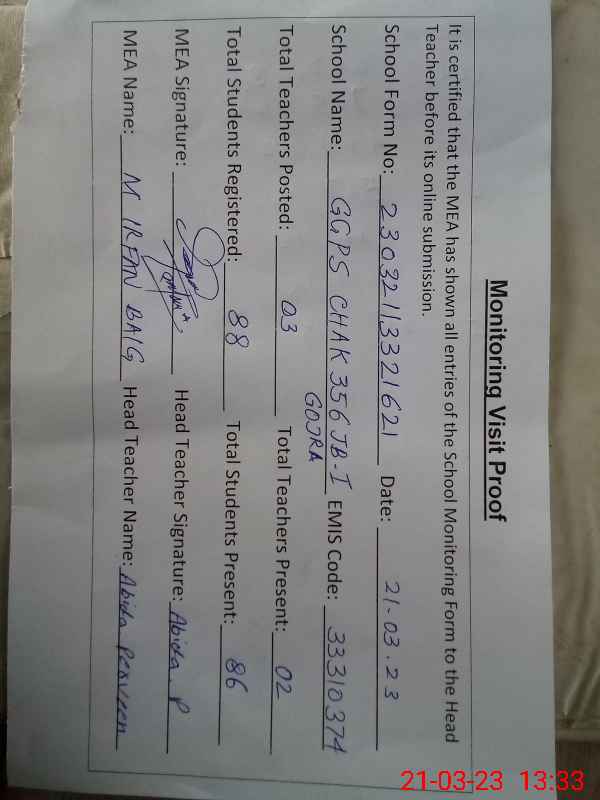 Monitoring Visit Proof
It is certified that the MEA has shown all entries of the School Monitoring Form to the Head
Teacher before its online submission.
School Form No: 23032113321621 Date: 21-03.23
School Name: GGPS CHAK 356 JB-I EMIS Code: 33310374
GOJRA
Total Teachers Posted: 03 Total Teachers Present: 02
Total Students Registered: 88 Total Students Present: 86
MEA Signature: Head Teacher Signature: Abida. P
MEA Name: M IRFAN BAIG Head Teacher Name: Abida Perveen
21-03-23 13:33